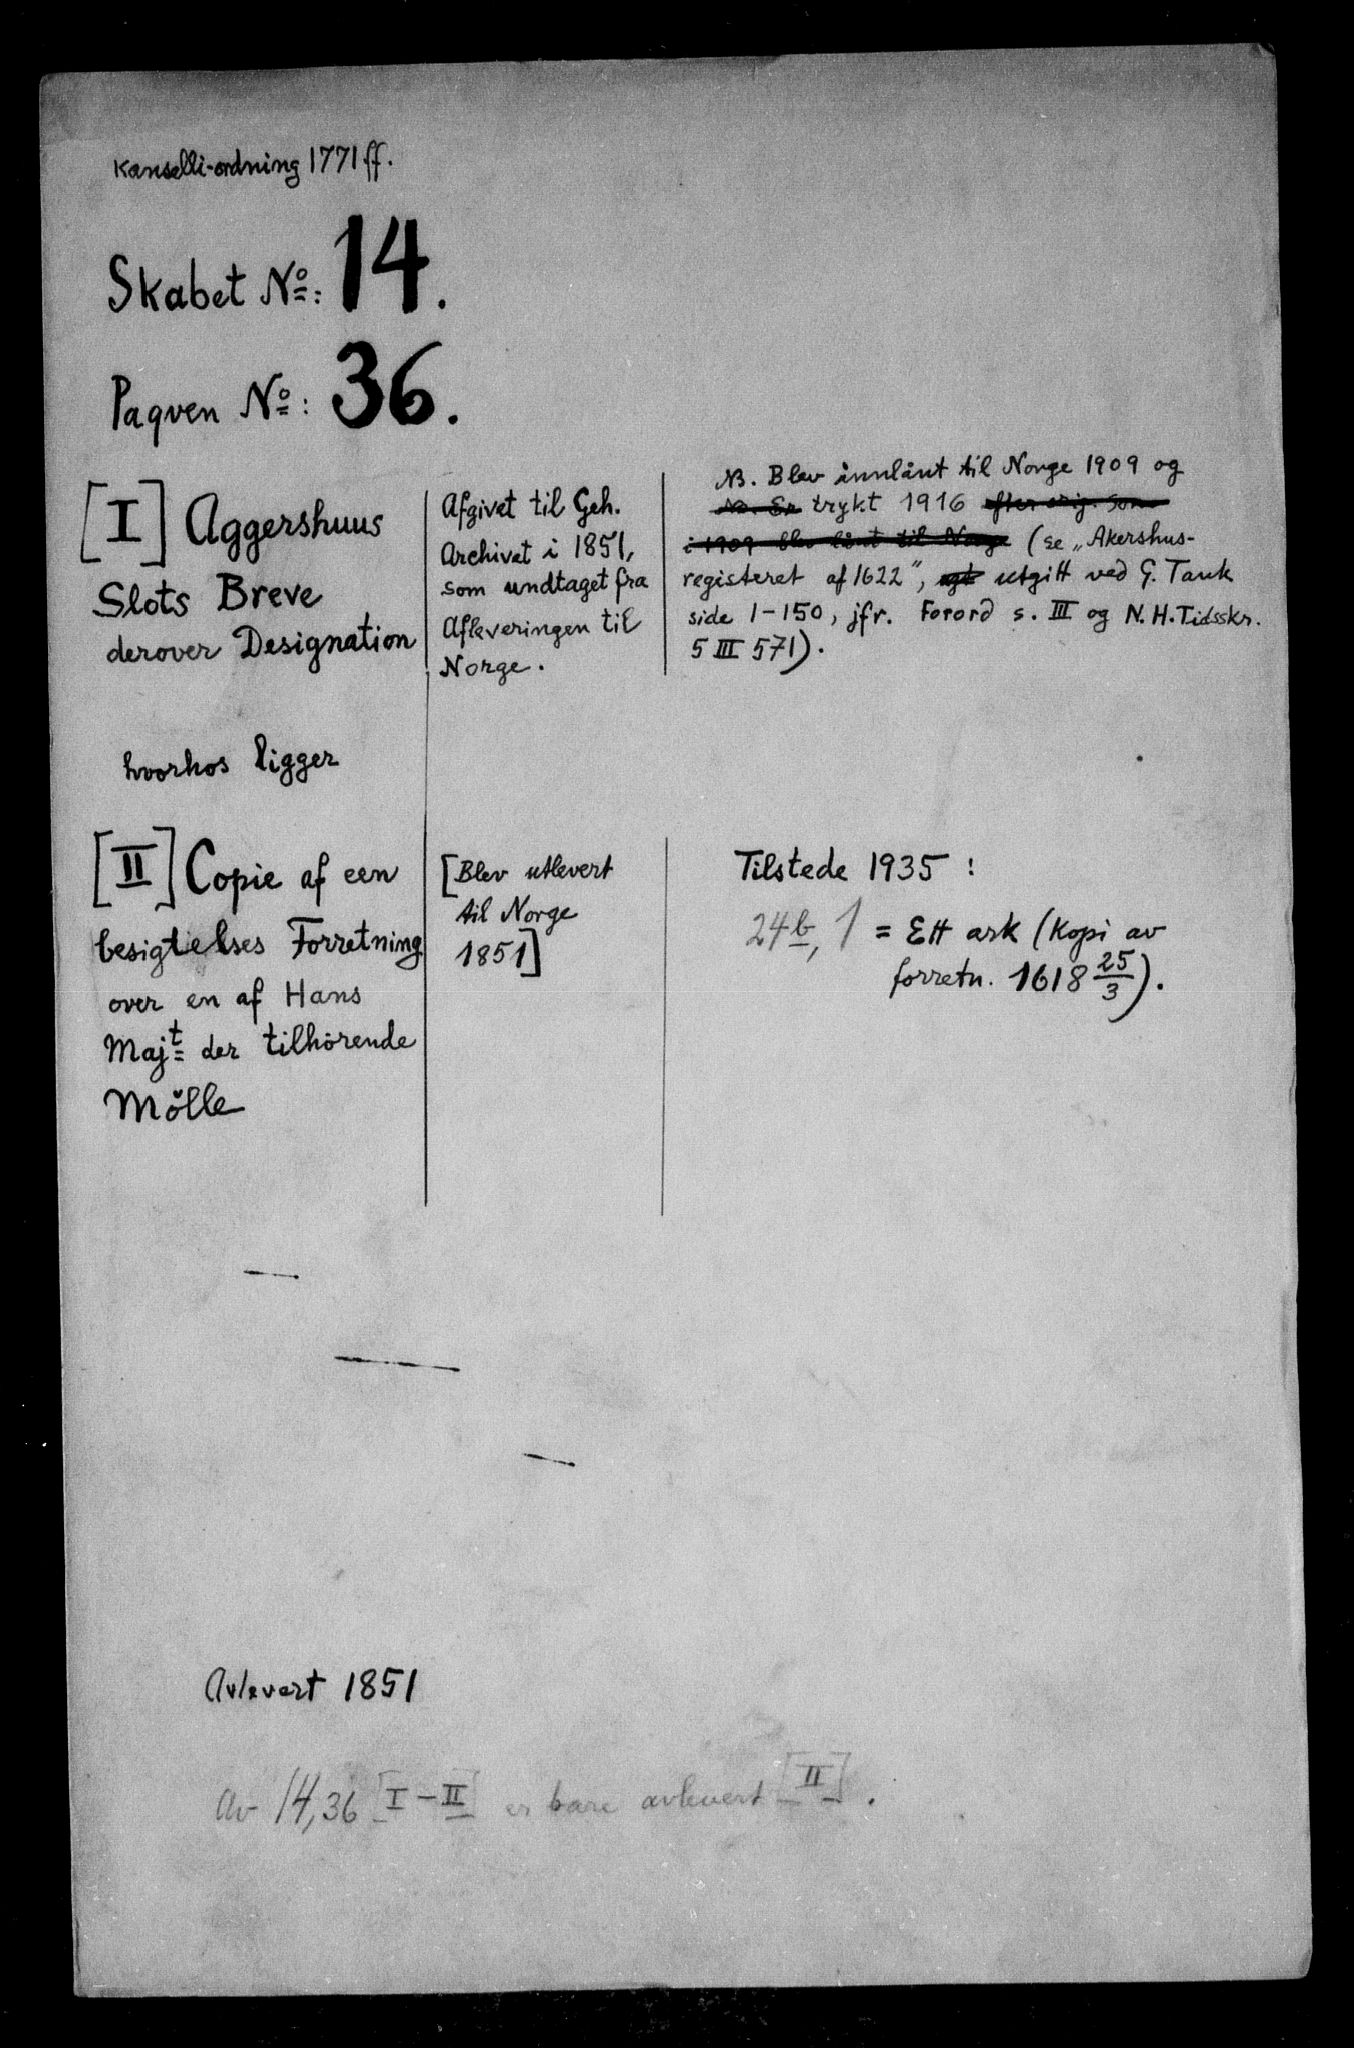 Kanselli-ordning 1771 ff.
Skabet No: 14.
Paqven No: 36.
[I] Aggershuus
Slots Breve
derover Designation
Afgivet til Geh.
Archivet i 1851,
som undtaget fra
Afleveringen til
Norge.
NB. Blev innlånt til Norge 1909 og
NB. Er trykt 1916 efter orig. som
i 1909 blev lånt til Norge (se „Akershus-
registeret af 1622", utgitt ved G. Tank
side 1-150, jfr. Forord s. III og N.H.Tidsskr.
5 III 571).
hvorhos ligger
[II] Copie af een
besigtelses Forretning
over en af Hans
Majt der tilhörende
Mölle
[Blev utlevert
til Norge
1851]
Tilstede 1935:
24b, 1 = Ett ark (Kopi av
forretn. 1618 25/3).
Avlevert 1851
Av 14,36 [I-II] er bare avlevert [II].